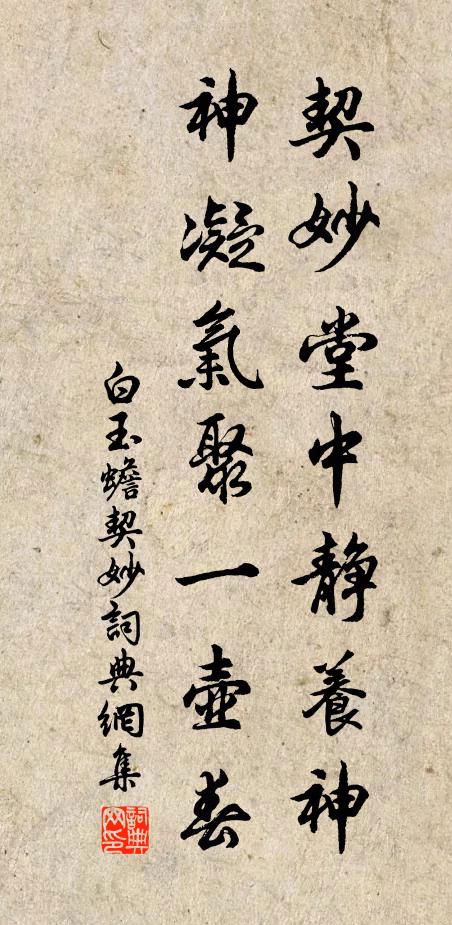 契妙堂中靜養神
神凝氣聚一壺春
白玉蟾契妙詞典網集
詞典網印